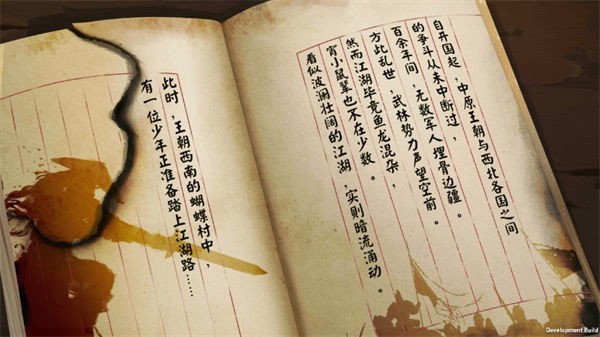 自开国起，中原王朝与西北各国之间
的争斗从未中断过，
百余年间，无数军人埋骨边疆。
方此乱世，武林势力声望空前。
然而江湖毕竟鱼龙混杂，
宵小鼠辈也不在少数。
看似波澜壮阔的江湖，实则暗流涌动。
此时，王朝西南的蝴蝶村中，
有一位少年正准备踏上江湖路……
Development Build